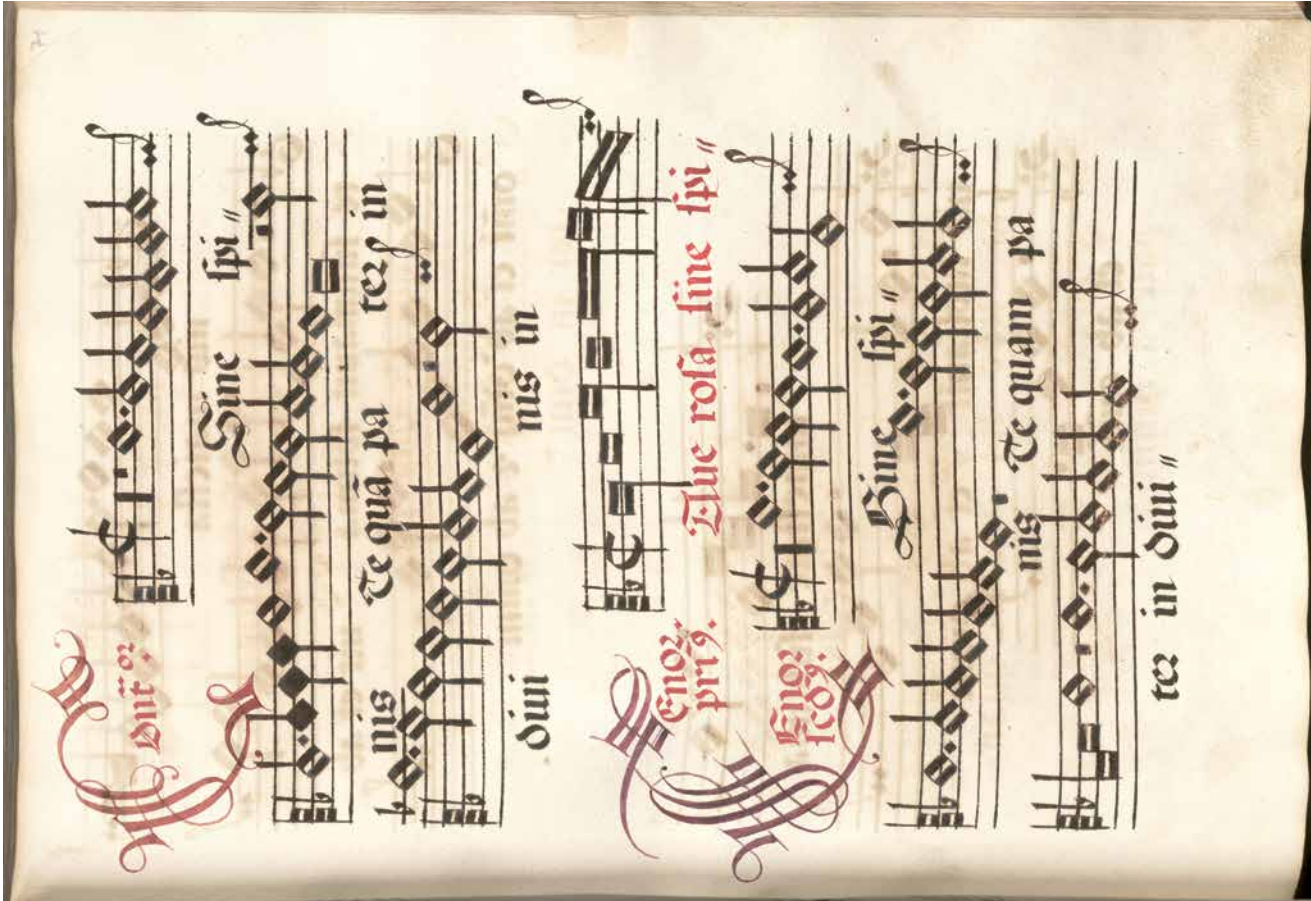 Sine ſpi〃
nis Te quā pa ter in
diui nis in
Tenor
pri9.
Aue roſa ſine ſpi〃
Tenor
ſcd9.
Sine ſpi〃
nis Te quam pa
ter in diui〃